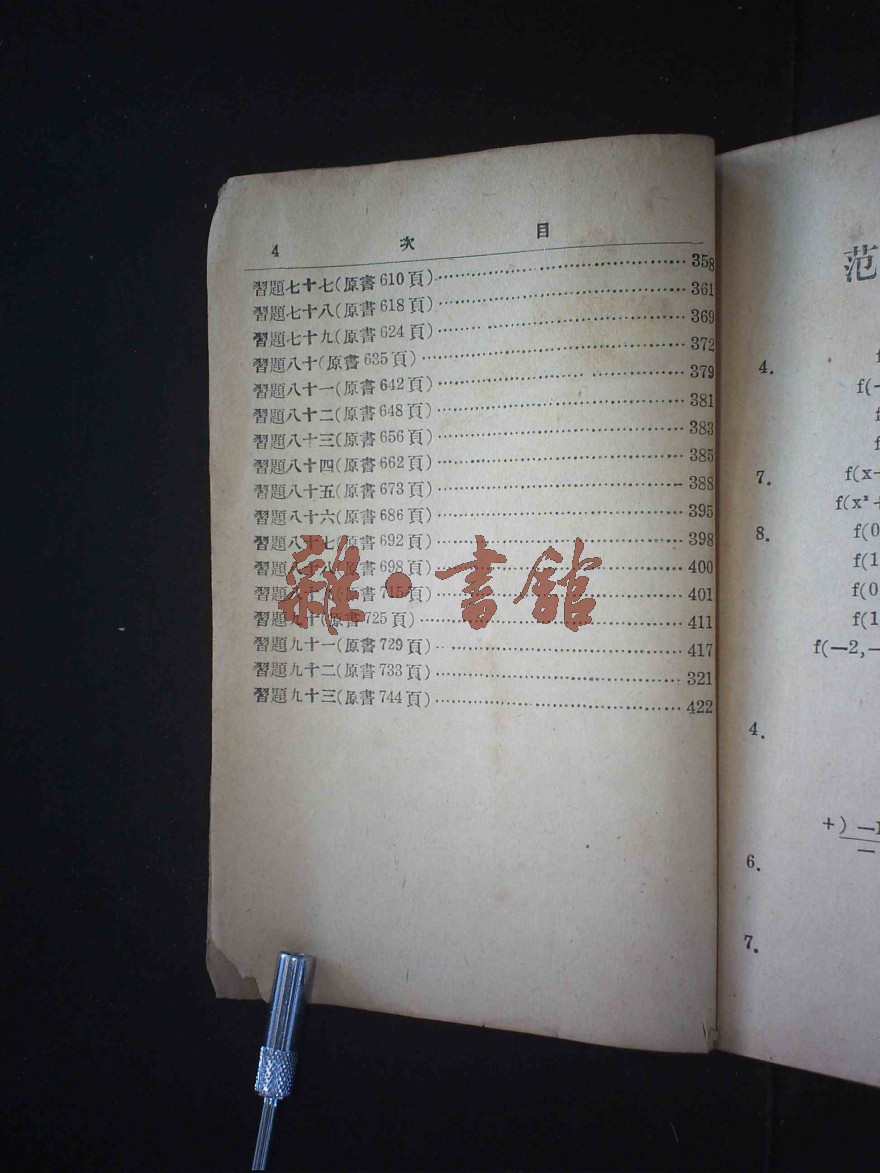 4 次 目
習題七十七(原書610頁) 358
習題七十八(原書618頁) 361
習題七十九(原書624頁) 369
習題八十(原書635頁) 372
習題八十一(原書642頁) 379
習題八十二(原書648頁) 381
習題八十三(原書656頁) 383
習題八十四(原書662頁) 385
習題八十五(原書673頁) 388
習題八十六(原書686頁) 395
習題八十七(原書692頁) 398
習題八十八(原書698頁) 400
習題八十九(原書715頁) 401
習題九十(原書725頁) 411
習題九十一(原書729頁) 417
習題九十二(原書733頁) 321
習題九十三(原書744頁) 422
雜·書館
范
4.
f(-
7. f(x-
f(x²+
8. f(0
f(1
f(0
f(1
f(—2,—
4.
+) —1
6.
7.